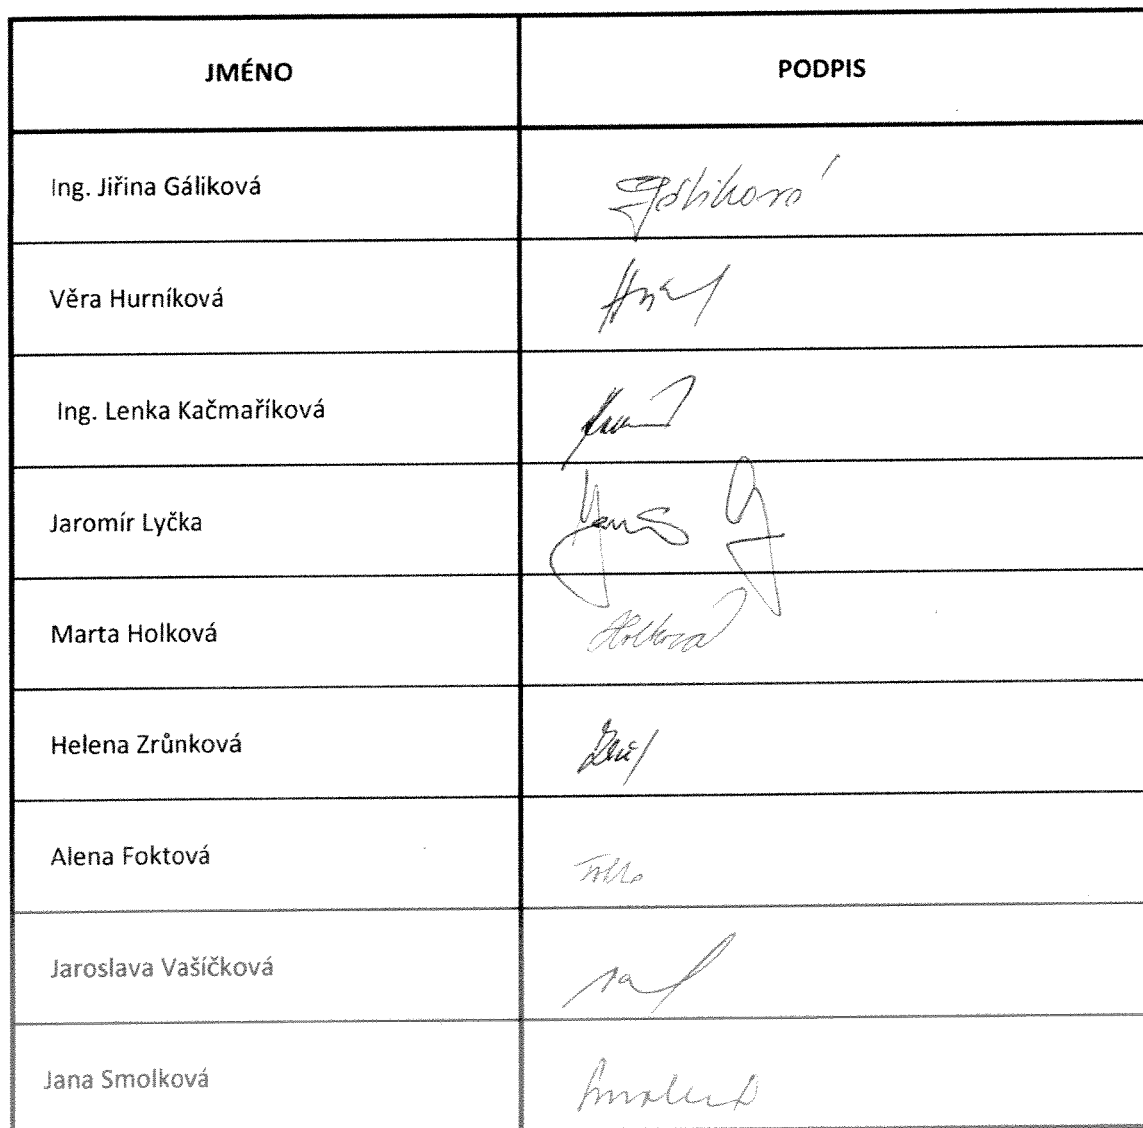 JMÉNO PODPIS
Ing. Jiřina Gáliková Gáliková
Věra Hurníková
Ing. Lenka Kačmaříková
Jaromír Lyčka
Marta Holková Holková
Helena Zrůnková
Alena Foktová
Jaroslava Vašíčková
Jana Smolková